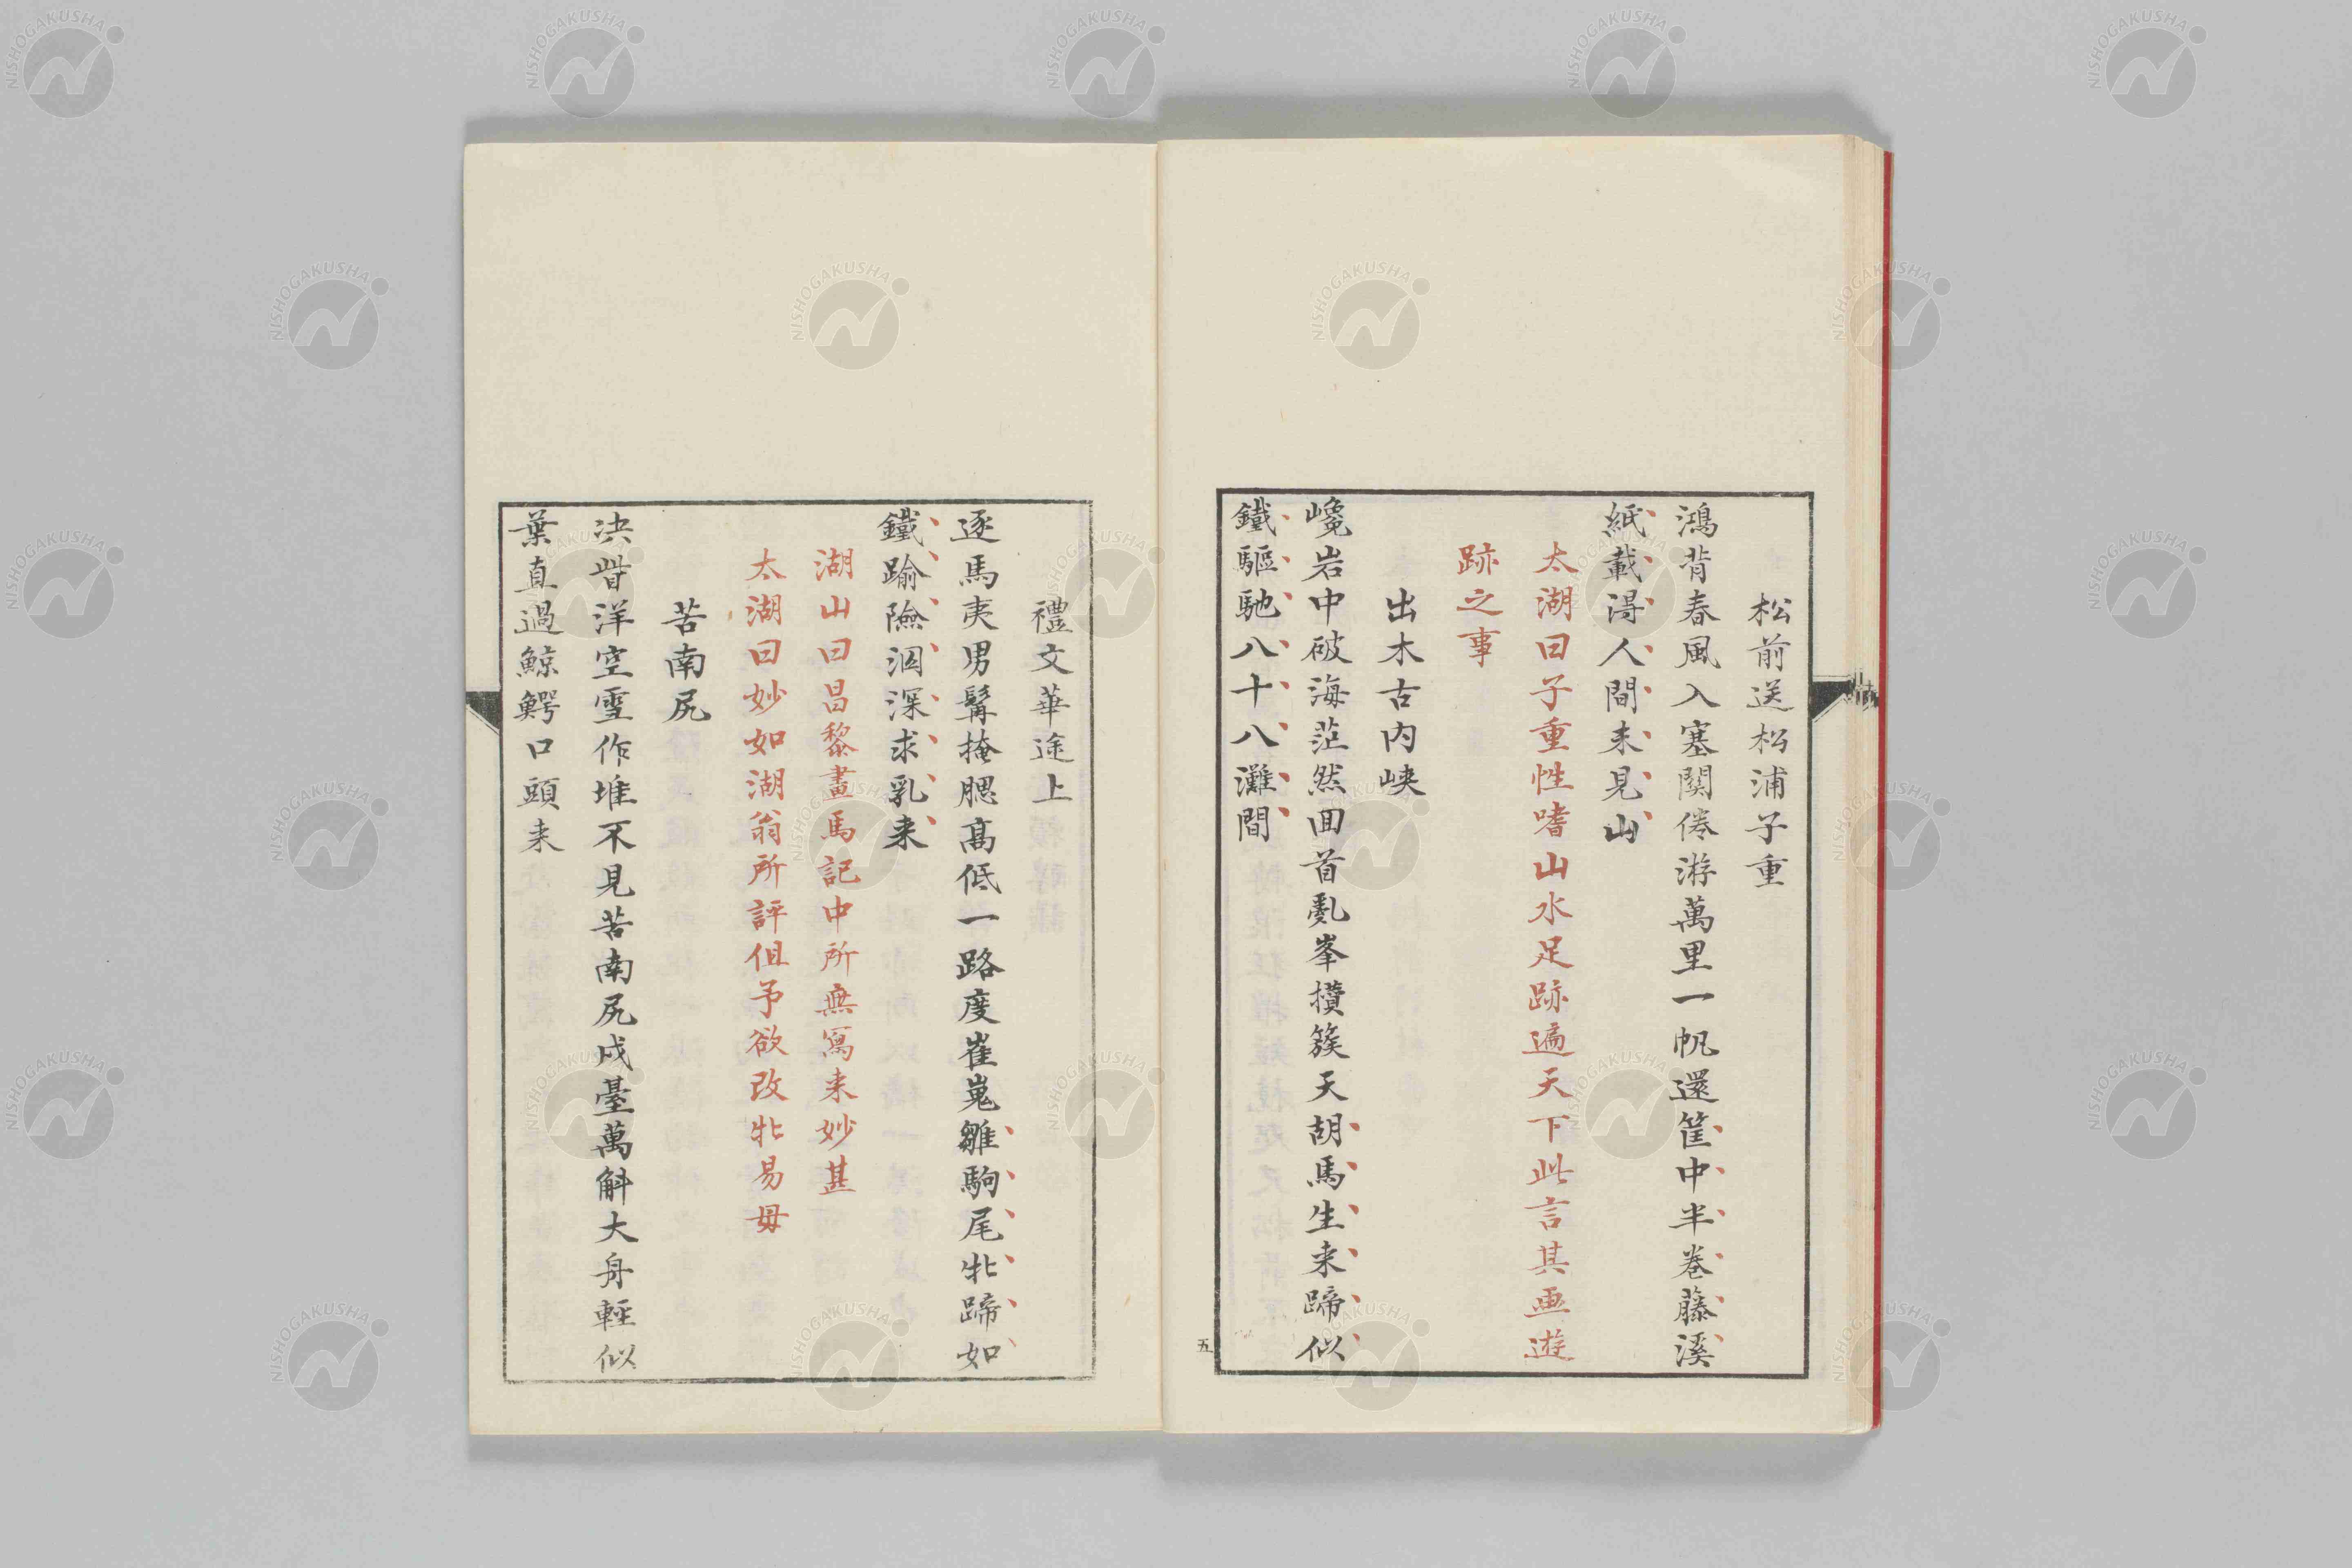 松前送松浦子重
鴻背春風入塞関倦游萬里一帆還筐中半巻藤溪
紙載得人間未見山
太湖曰子重性嗜山水足跡遍天下此言其画遊
跡之事
出木古内峡
巉岩中破海茫然回首亂峯攢簇天胡馬生来蹄似
鐵驅馳八十八灘間
五
禮文華途上
逐馬夷男髯掩腮髙低一路度崔嵬雛駒尾牝蹄如
鐵踰險泅深求乳来
湖山曰昌黎畫馬記中所無寫来妙甚
太湖曰妙如湖翁所評但予欲改牝易毋
苦南尻
決眥洋空雪作堆不見苦南尻戍臺萬斛大舟輕似
葉直過鯨鰐口頭来
NISHOGAKUSHA